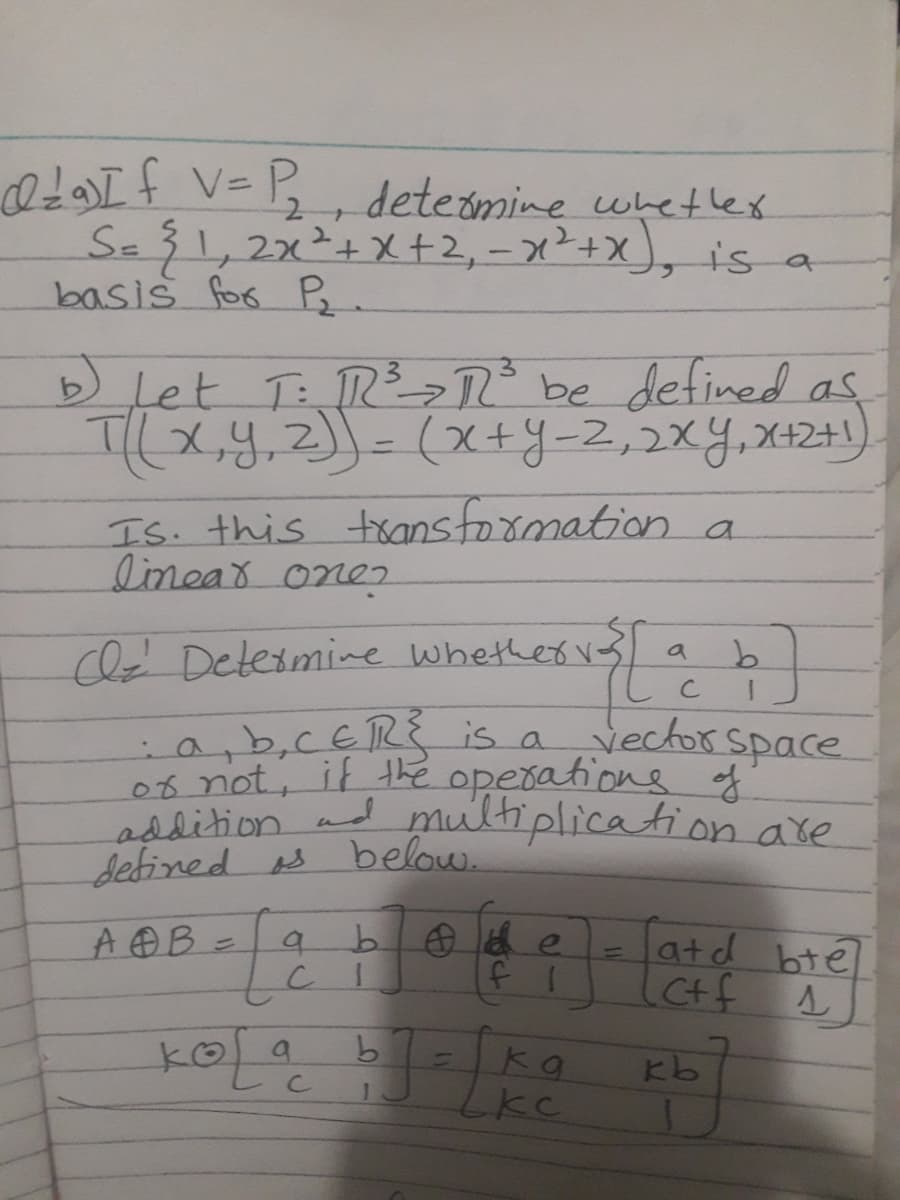 Q1: a) If V = P₂, determine whether
S = {1, 2x²+x+2, -x²+x}, is a
basis for P₂.
b) Let T: ℝ³→ℝ³ be defined as
T((x,y,z)) = (x+y-z, 2xy, x+z+1)
Is. this transformation a
linear one?
Q2: Determine whether V={[a b
c 1]
: a, b, c ∈ ℝ} is a vector space
or not, if the operations of
addition and multiplication are
defined as below.
A ⊕ B = [a b] ⊕ [d e] = [a+d b+e]
[c 1] [f 1] [c+f 1]
k⊙[a b] = [ka kb]
[c 1] [kc 1]